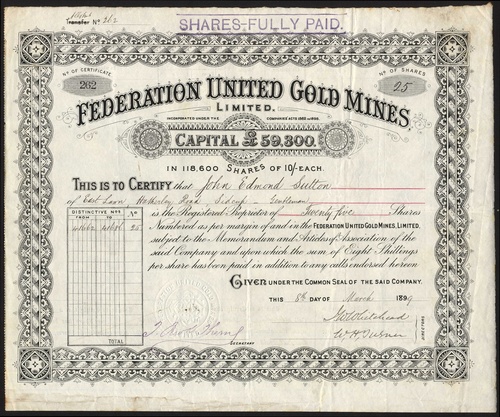 Transfer No 262
SHARES-FULLY PAID.
No OF CERTIFICATE
262
No OF SHARES
25
FEDERATION UNITED GOLD MINES,
LIMITED.
INCORPORATED UNDER THE COMPANIES ACTS 1862 TO 1898.
CAPITAL £59,300.
IN 118,600 SHARES OF 10/- EACH.
THIS IS TO CERTIFY that John Edmond Sutton
of East Lawn Hatherley Road Sidcup - Gentleman
is the Registered Proprietor of Twenty five Shares
Numbered as per margin of and in the FEDERATION UNITED GOLD MINES, LIMITED,
subject to the Memorandum and Articles of Association of the
said Company and upon which the sum of Eight Shillings
per share has been paid in addition to any calls endorsed hereon
DISTINCTIVE Nos
FROM TO No
25
TOTAL
GIVEN UNDER THE COMMON SEAL OF THE SAID COMPANY.
THIS 8th DAY OF March 1899
W. H. Turner
DIRECTORS
SECRETARY